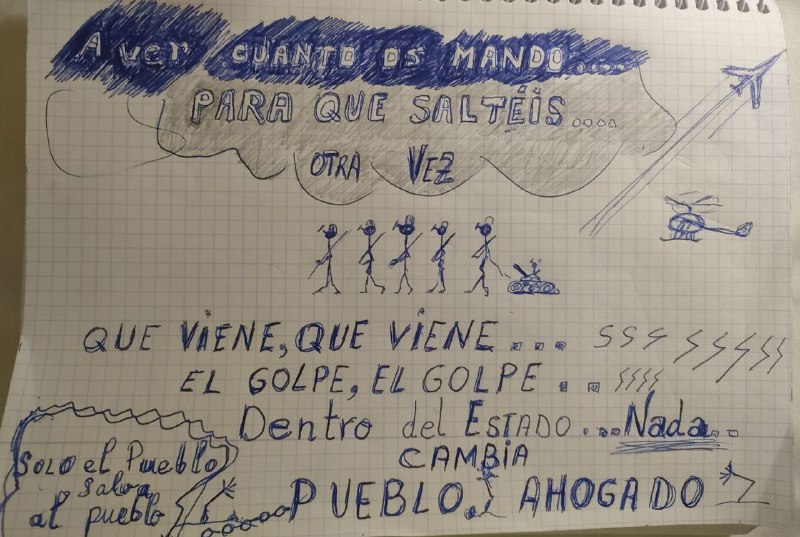 A ver CUANTO OS MANDO.....
PARA QUE SALTÉIS....
OTRA VEZ
QUE VIENE, QUE VIENE...
EL GOLPE, EL GOLPE..
Dentro del ESTADO...Nada..
CAMBIA
SOLO el Pueblo
salva
al pueblo
PUEBLO. AHOGADO